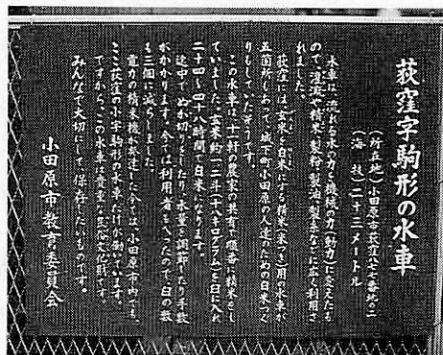 荻窪字駒形の水車
(所在地)小田原市荻窪八七七番地の二
(海抜)二十三メートル
水車は、流れる水の力を機械の力(動力)に変えたも
ので、灌漑や精米、製粉、製油、製糸などに広く利用さ
れました。
荻窪には、玄米を白米にする精米(米つき)用の水車が
五箇所もあって、城下町小田原の人達のための白米つく
りもしていたそうです。
この水車は、十一軒の農家の共有で順番に精米をし
ていました。玄米約一、二斗(十八キログラム)を臼に入れ
二十四〜四十八時間で白米になります。
途中で、ぬか切りをしたり、水量を調節したり手数
がかかります。今では利用者も入ったので臼の数
も三個に減らしました。
電力の精米機が普及した今では、小田原市内でも、
ここ荻窪の小字駒形の水車だけが動いています。
ですから、この水車は貴重な民俗文化財です。
みんなで大切にして保存したいものです。
小田原市教育委員会